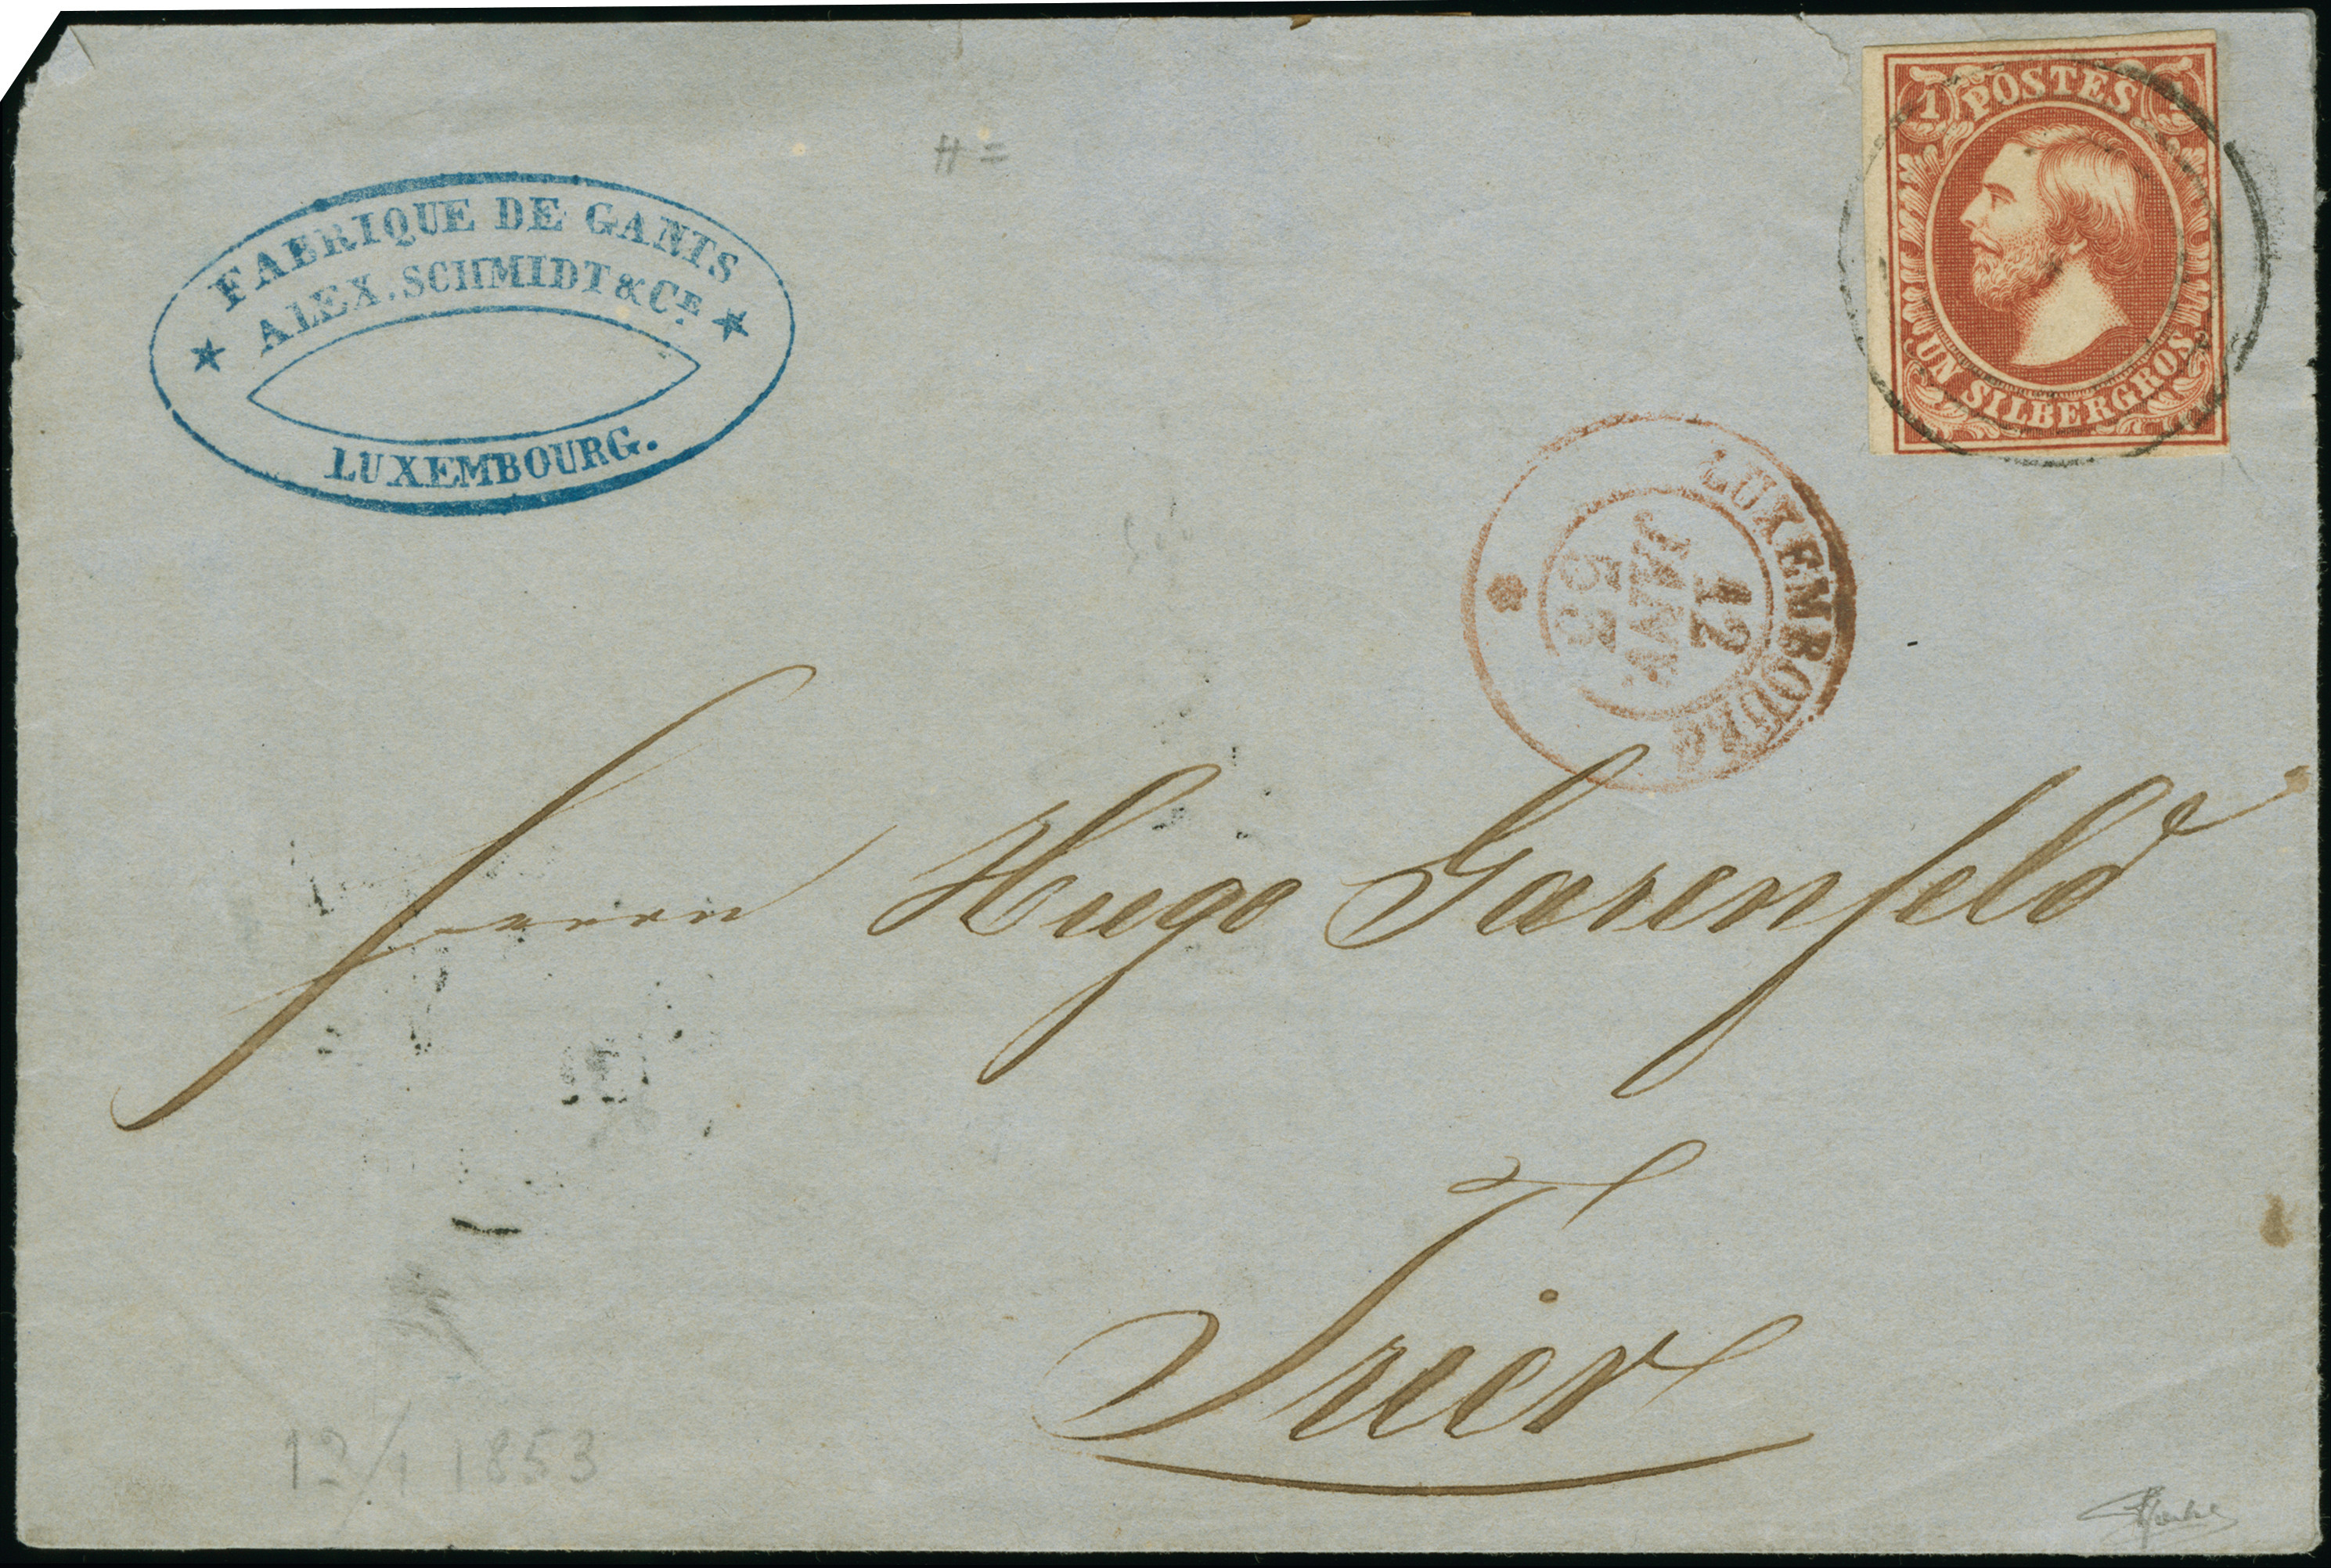 FABRIQUE DE GANTS
ALEX. SCHMIDT & CE.
LUXEMBOURG.
1 POSTES 1
UN SILBERGROS
LUXEMBOURG
12
JANV.
53
Herrn Hugo Garenfeld
Trier
12/1 1853